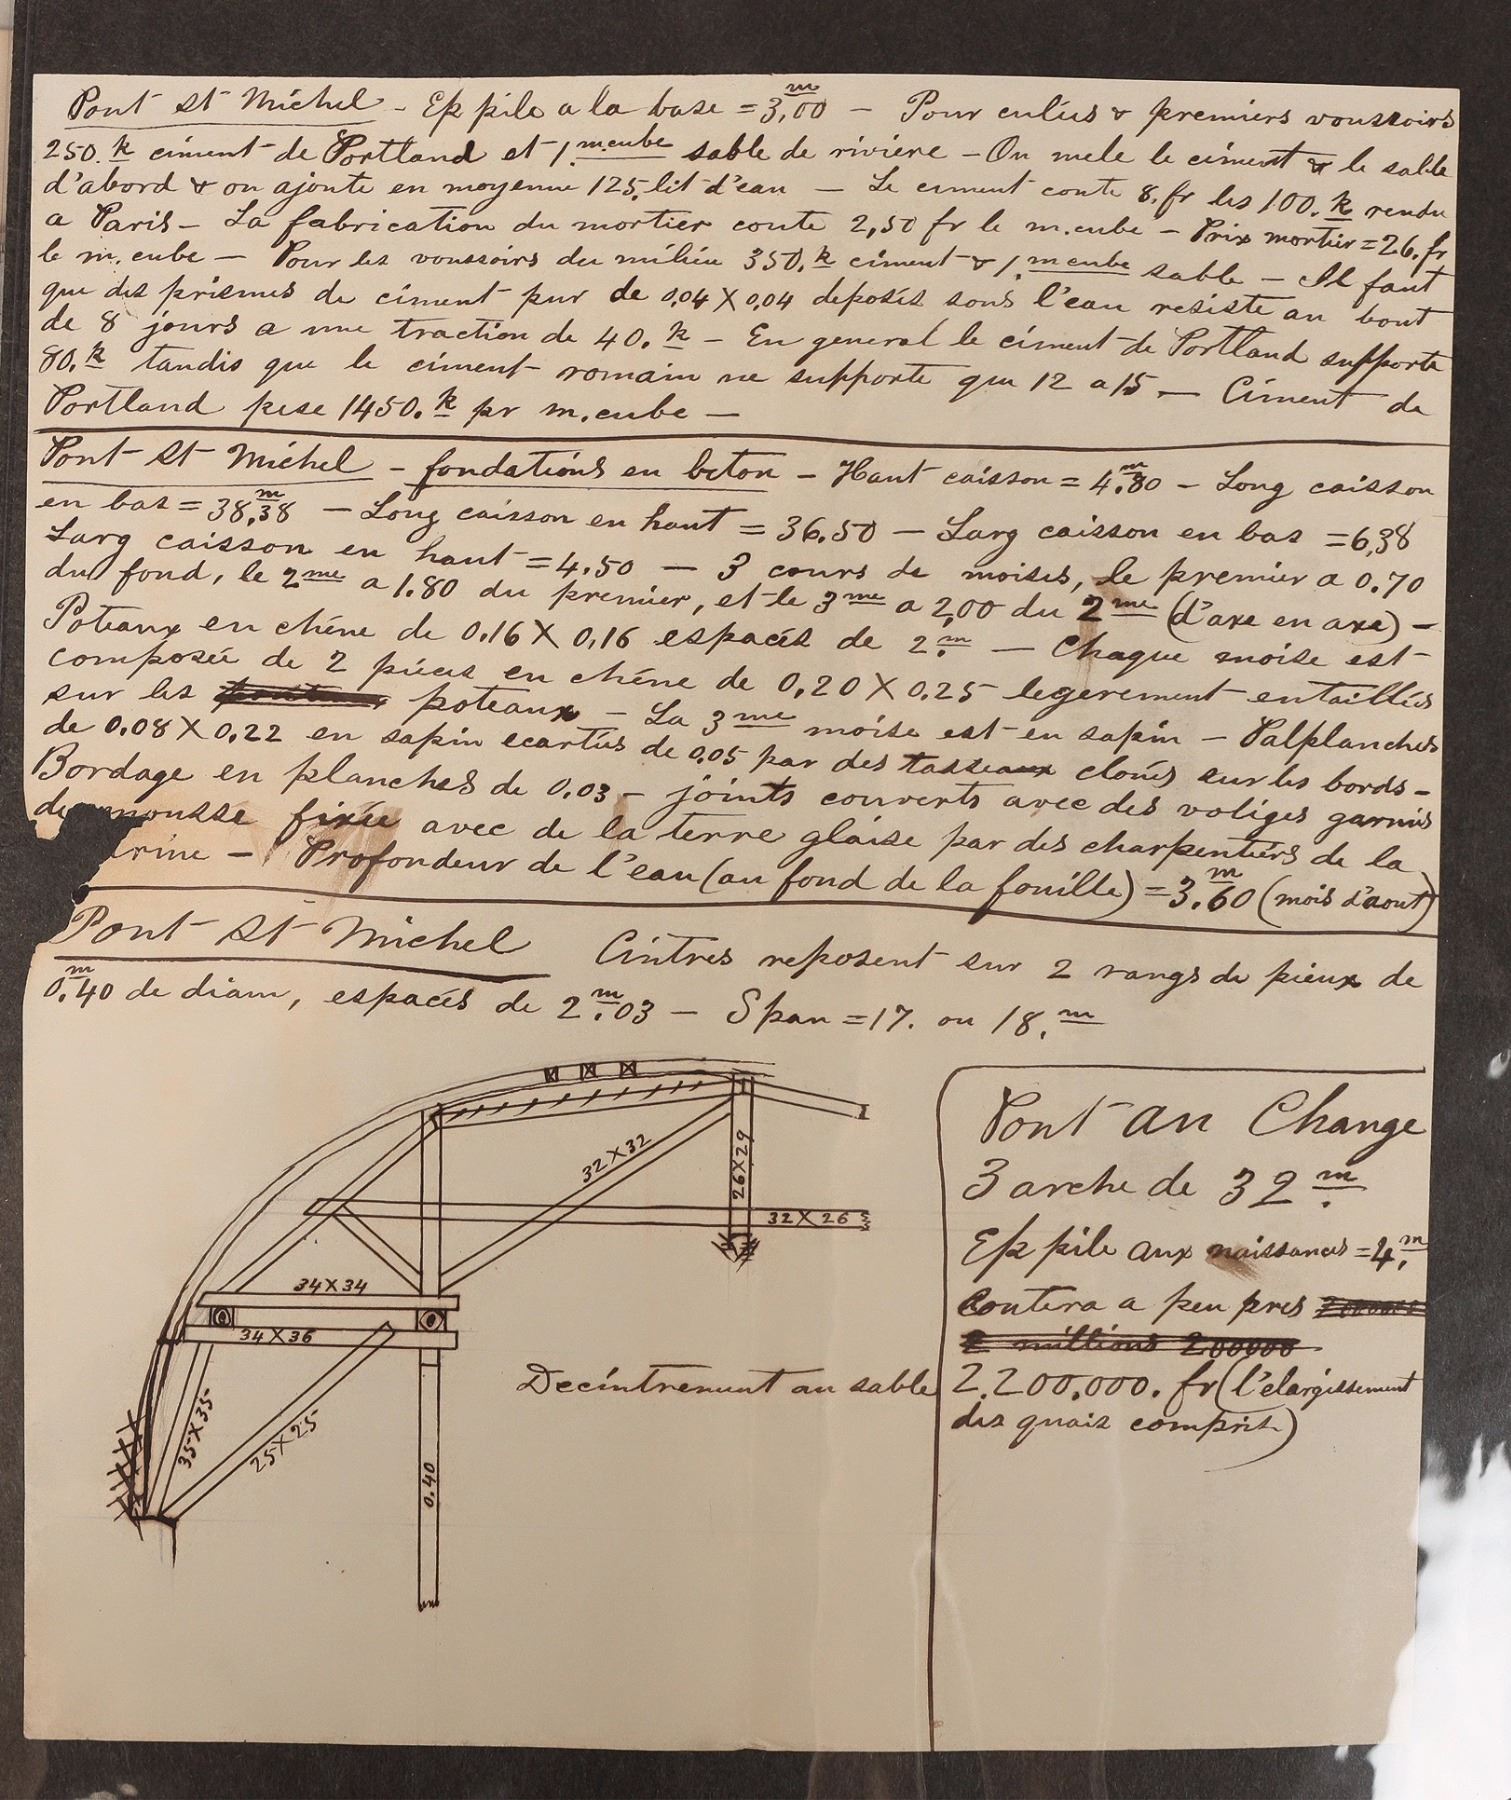 Pont St Michel - Ep pile a la base = 3,00 m - Pour culées & premiers voussoirs
250. k ciment de Portland et 1. m.cube sable de riviere - On mele le ciment & le sable
d'abord & on ajoute en moyenne 125. lit d'eau - Le ciment coute 8. fr les 100. k rendu
a Paris - La fabrication du mortier coute 2,50 fr le m.cube - Prix mortier = 26. fr
le m.cube - Pour les voussoirs du milieu 350. k ciment & 1. m cube sable - Il faut
que des prismes de ciment pur de 0,04 X 0,04 deposés sous l'eau resiste au bout
de 8 jours a une traction de 40. k - En general le ciment de Portland supporte
80. k tandis que le ciment romain ne supporte que 12 a 15 - Ciment de
Portland pese 1450. k pr m.cube -
Pont St Michel - fondations en beton - Haut caisson = 4.80 m - Long caisson
en bas = 38,38 m - Long caisson en haut = 36.50 - Larg caisson en bas = 6,38
Larg caisson en haut = 4.50 - 3 cours de moises, le premier a 0.70
du fond, le 2me a 1.80 du premier, et le 3me a 2,00 du 2me (d'axe en axe) -
Poteaux en chéne de 0,16 X 0,16 espacés de 2. m - Chaque moise est
composée de 2 piéces en chéne de 0,20 X 0.25 legerement entaillés
sur les poteaux - La 3me moise est en sapin - Palplanches
de 0.08 X 0,22 en sapin ecartés de 0,05 par des tasseaux cloués sur les bords -
Bordage en planches de 0.03 - joints couverts avec des voliges garnis
de mousse fixée avec de la terre glaise par des charpentiers de la
rine - Profondeur de l'eau (au fond de la fouille) = 3.60 m (mois d'aout)
Pont St Michel Cintres reposent sur 2 rangs de pieux de
0.40 m de diam, espacés de 2.03 m - Span = 17. ou 18. m
32 X 32
26 X 29
32 X 26
34 X 34
34 X 36
35 X 35
25 X 25
0.40
Decintrement au sable
Pont au Change
3 arche de 32 m.
Ep pile aux naissances = 4. m
Coutera a peu pres
2 millions 200000
2.200.000. fr (l'elargissement
des quais compris)